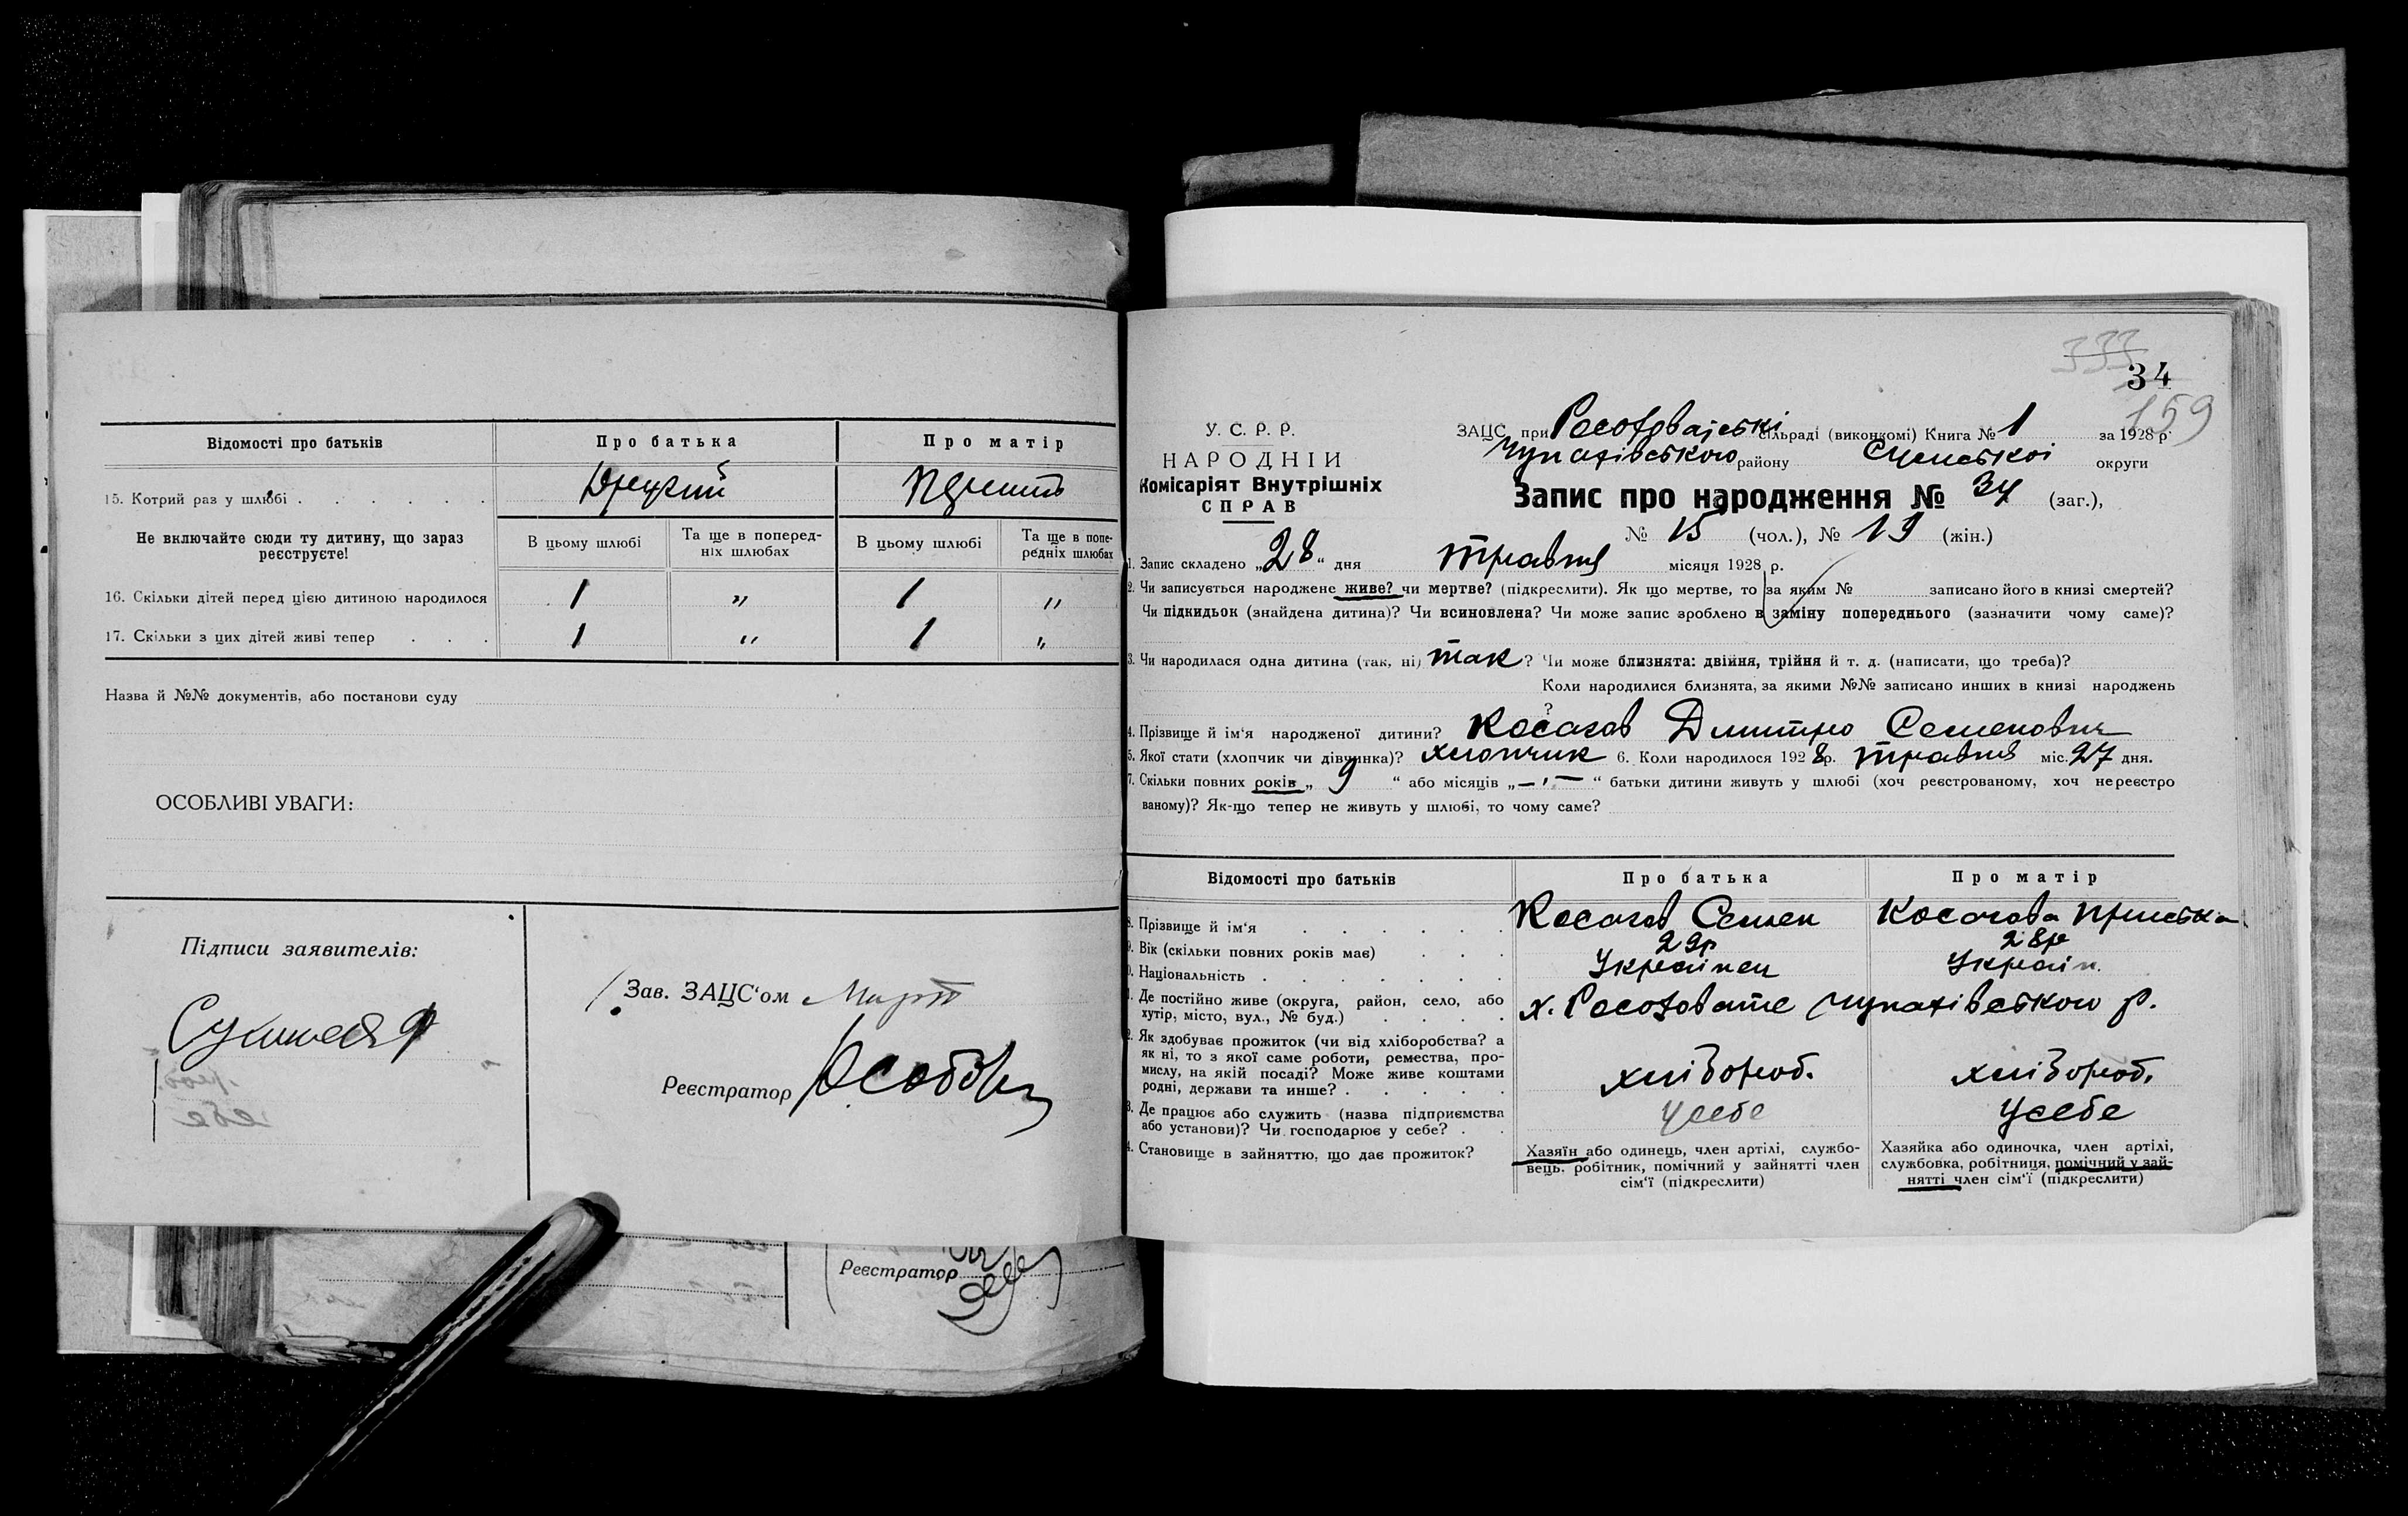 Відомості про батьків
Про батька
Про матір
15. Котрий раз у шлюбі
Другий
Не включайте сюди ту дитину, що зараз реєструєте!
В цьому шлюбі
Та ще в поперед-
ніх шлюбах
В цьому шлюбі
Та ще в попе-
редніх шлюбах
16. Скільки дітей перед цією дитиною народилося 1 " 1 "
17. Скільки з цих дітей живі тепер 1 " 1 "
Назва й №№ документів, або постанови суду
ОСОБЛИВІ УВАГИ:
Підписи заявителів:
Зав. ЗАЦС'ом
Реєстратор
Реєстратор
333
34
159
У. С. Р. Р.
НАРОДНІЙ
Комісаріят Внутрішніх
СПРАВ
ЗАЦС при сільраді (виконкомі) Книга № 1 за 1928 р.
Чупахівського району Сумської округи
Запис про народження № 34 (заг.),
№ 15 (чол.), № 19 (жін.)
1. Запис складено „28“ дня травня місяця 1928 р.
2. Чи записується народжене живе? чи мертве? (підкреслити). Як що мертве, то за яким № записано його в книзі смертей?
Чи підкидьок (знайдена дитина)? Чи всиновлена? Чи може запис зроблено в заміну попереднього (зазначити чому саме)?
3. Чи народилася одна дитина (так, ні) так? Чи може близнята: двійня, трійня й т. д. (написати, що треба)?
Коли народилися близнята, за якими №№ записано инших в книзі народжень
?
4. Прізвище й ім'я народженої дитини? Косагов Дмитро Семенович
5. Якої стати (хлопчик чи дівчинка)? хлопчик 6. Коли народилося 1928 р. травня міс. 27 дня.
7. Скільки повних років „ 9 “ або місяців „ — “ батьки дитини живуть у шлюбі (хоч реєстрованому, хоч нереєстро
ваному)? Як-що тепер не живуть у шлюбі, то чому саме?
Відомості про батьків
Про батька
Про матір
8. Прізвище й ім'я Косагов Семен Косагова Приська
9. Вік (скільки повних років має) 29 р 28 р
Національність Українец Україн.
Де постійно живе (округа, район, село, або
хутір, місто, вул., № буд.) х. Росоховате Чупахівського р.
Як здобуває прожиток (чи від хліборобства? а
як ні, то з якої саме роботи, ремества, про-
мислу, на якій посаді? Може живе коштами
родні, держави та инше? хлібороб. хлібороб.
Де працює або служить (назва підприємства
або установи)? Чи господарює у себе? у себе у себе
Становище в зайняттю, що дає прожиток?
Хазяїн або одинець, член артілі, службо-
вець, робітник, помічний у зайнятті член
сім'ї (підкреслити)
Хазяйка або одиночка, член артілі,
службовка, робітниця, помічний у зай-
нятті член сім'ї (підкреслити)